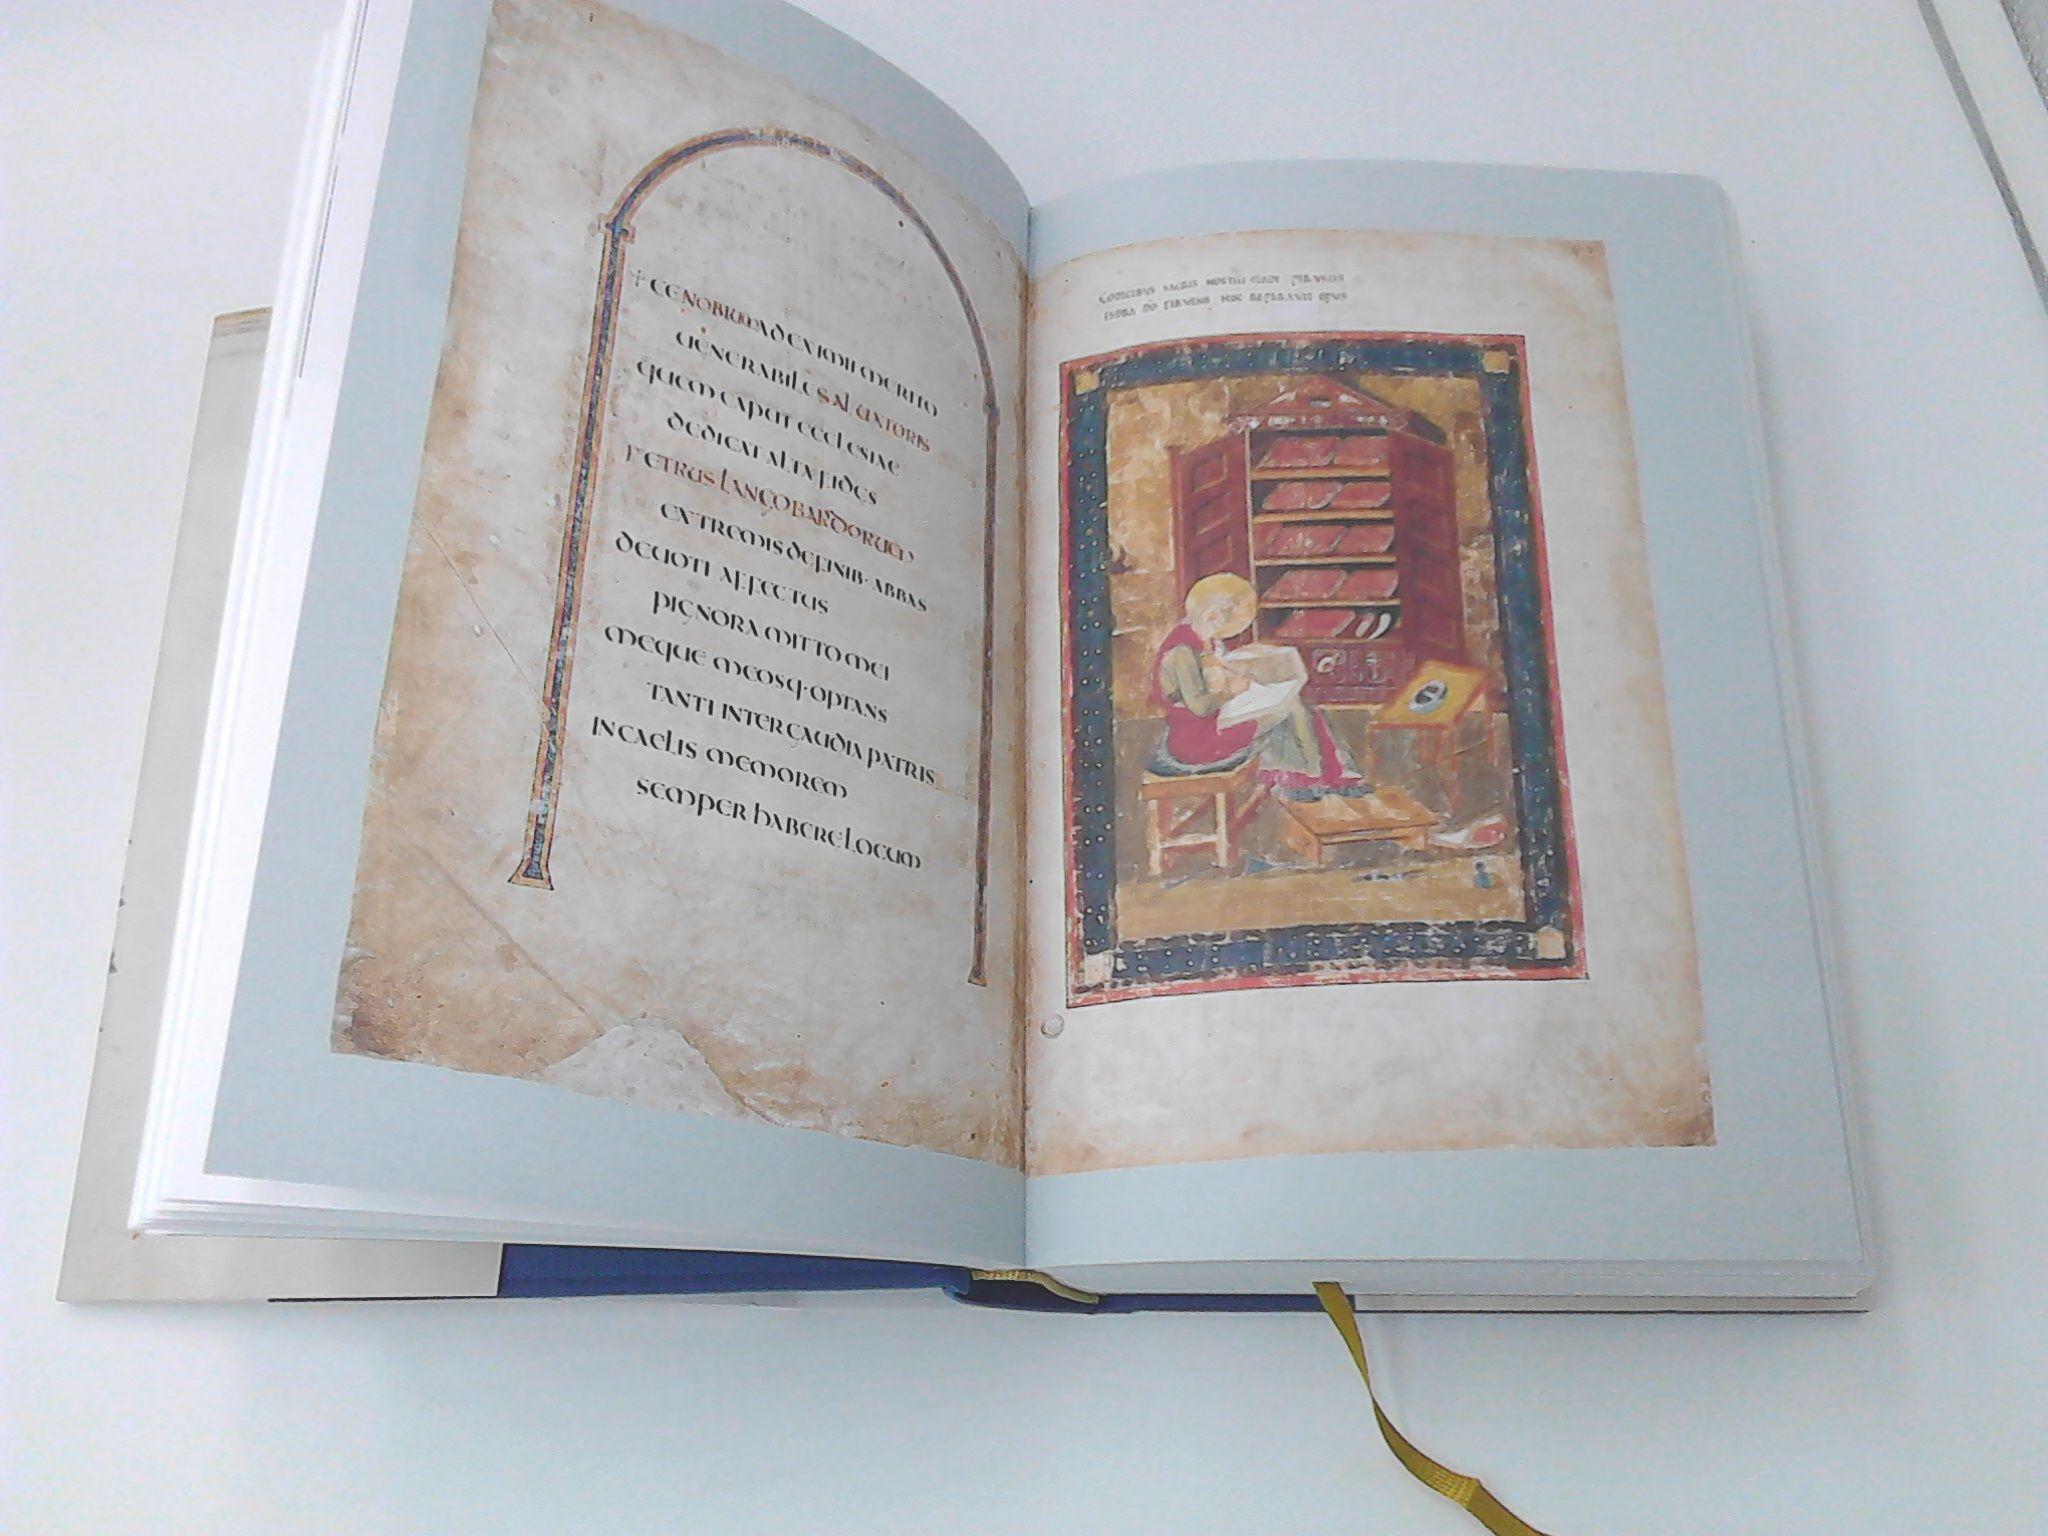 + CENOBIUM AD EXIMII MERITO
VENERABILE SALVATORIS
QUEM CAPUT ECCLESIAE
DEDICAT ALTA FIDES
PETRUS LANGOBARDORUM
EXTREMIS DE FINIB· ABBAS
DEVOTI AFFECTUS
PIGNORA MITTO MEI
MEQUE MEOSQ· OPTANS
TANTI INTER GAUDIA PATRIS
IN CAELIS MEMOREM
SEMPER HABERE LOCUM
CODICIBUS SACRIS HOSTILI CLADE PERUSTIS
ESDRA DŌ FERVENS HOC REPARAVIT OPUS